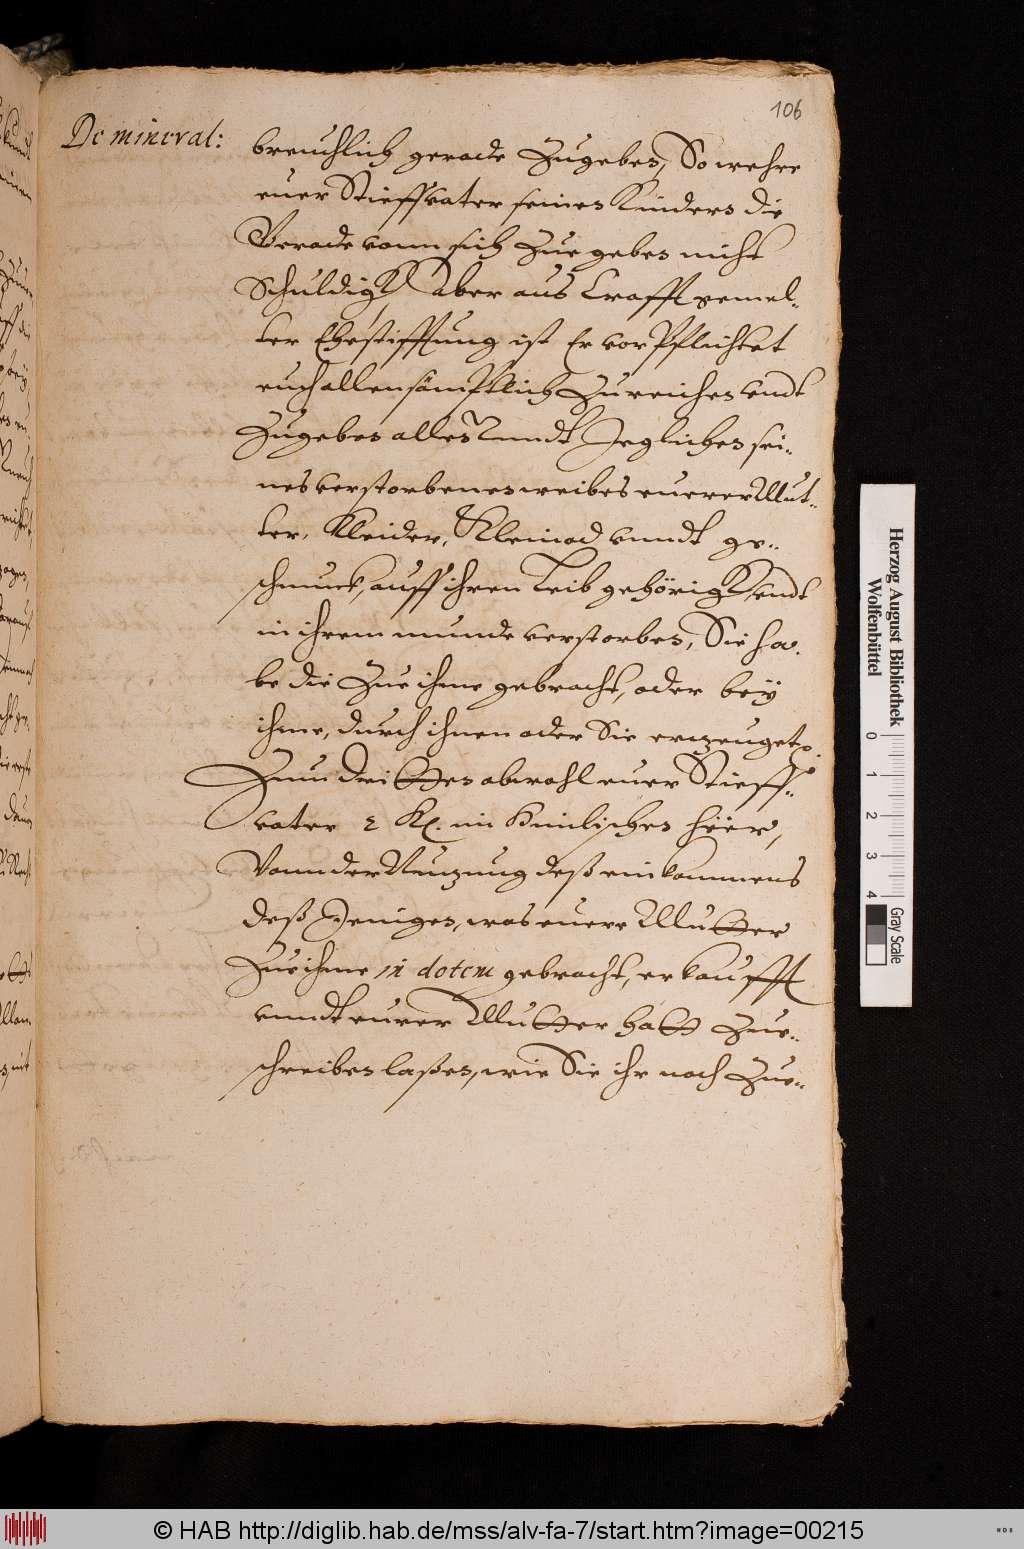 106
De mineral:
breuchlich gerade Zugeben, So wehre
euer Stieffvater seinen Kindern die
Gerade vonn sich Zuegeben nicht
Schuldigk, Aber aus Crafft gemel-
ter Ehestifftung ist Er vorPflichtet
euch allen sämptlich Zureichen vndt
Zugeben alles vnndt Jegliches sei-
nes verstorbenen weibes euerer Mut-
ter, Kleider, Kleinod vnndt ge-
schmuck, auff ihren Leib gehörigk, vndt
in ihrem munde verstorben, Sie ha-
be die Zue ihme gebracht, oder bey
ihme, durch ihnen oder Sie erzeuget
Zum dritten obwohl euer Stieff-
vater 2 im
Vonn der Nutzung deß einkommens
deß Jenigen, was euere Mutter
Zue ihme in dotem gebracht, erkaufft
vnndt eurer Mutter hatt Zue-
schreiben laßen, wie Sie ihr noch Zue-
Herzog August Bibliothek
Wolfenbüttel
0 1 2 3 4
Gray Scale
© HAB http://diglib.hab.de/mss/alv-fa-7/start.htm?image=00215